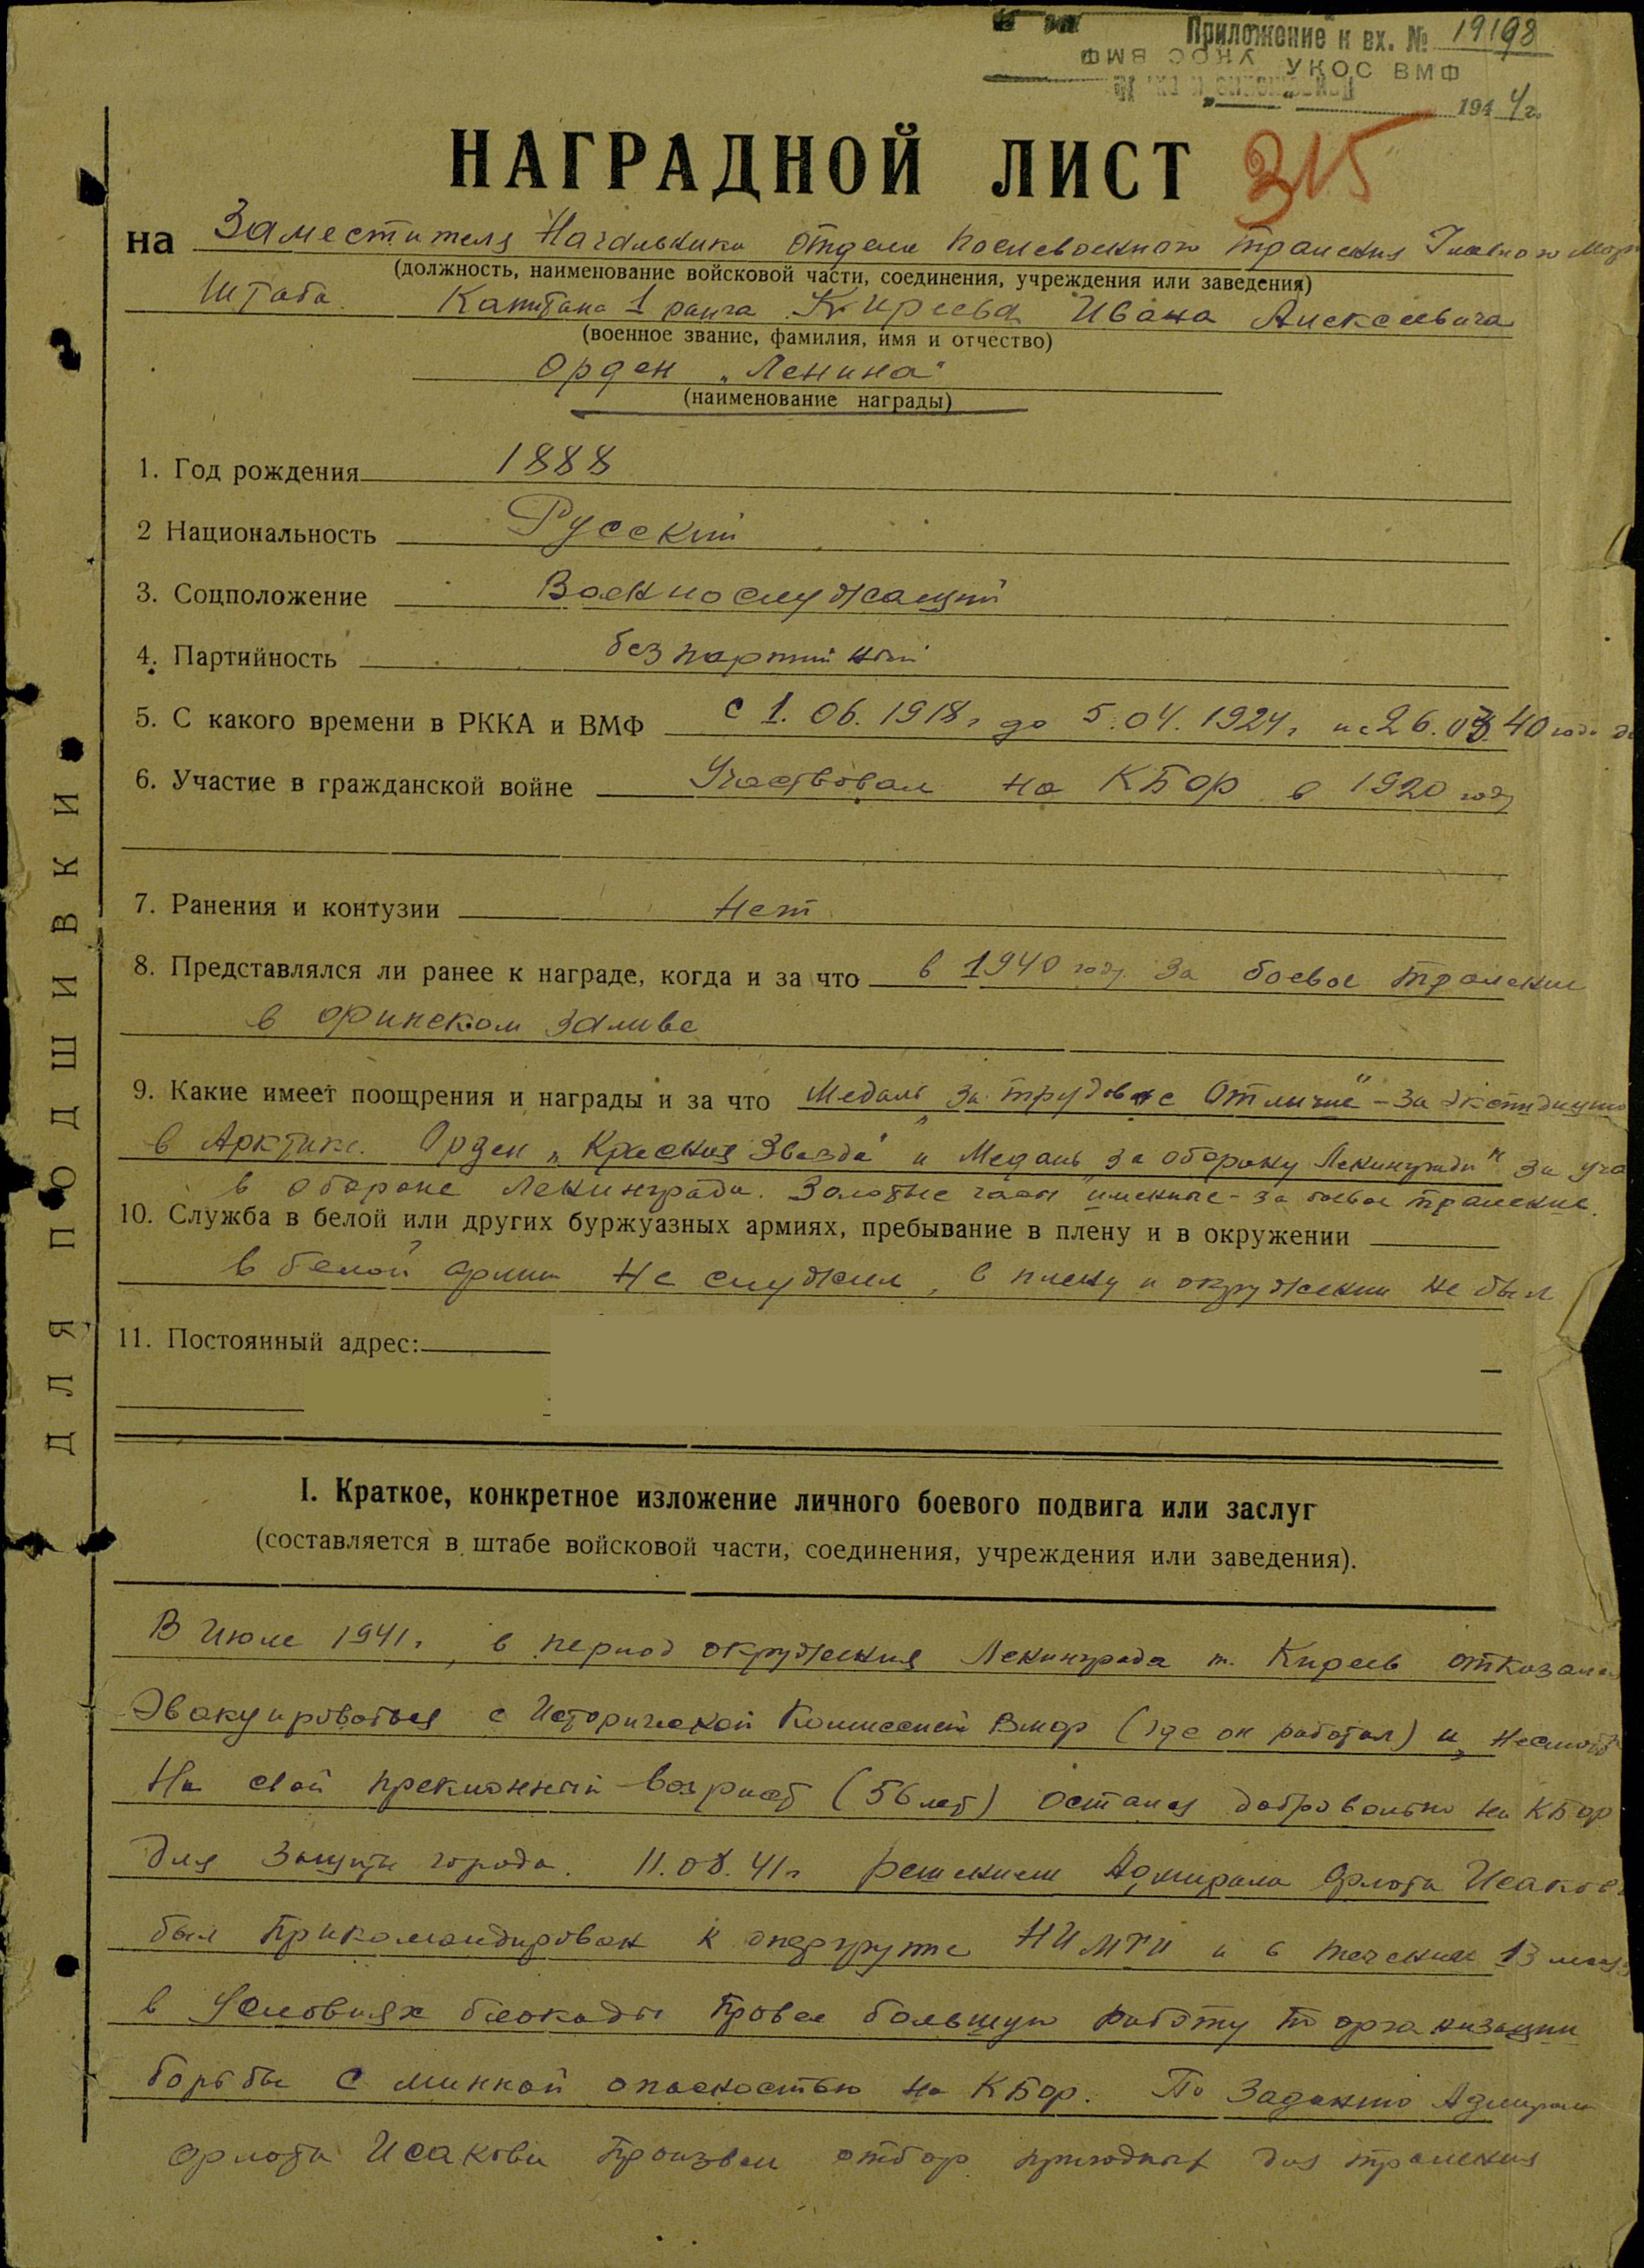 Приложение к вх. № 19198
УКОС ВМФ
1944г.
НАГРАДНОЙ ЛИСТ 315
на Заместителя Начальника отдела послевоенного траления Главного Мор
(должность, наименование войсковой части, соединения, учреждения или заведения)
Штаба. Капитана 1 ранга Киреева Ивана Алексеевича
(военное звание, фамилия, имя и отчество)
Орден „Ленина"
(наименование награды)
1. Год рождения 1888
2 Национальность Русский
3. Соцположение Военнослужащий
4. Партийность беспартийный
5. С какого времени в РККА и ВМФ с 1.06.1918г до 5.04.1924г и с 26.03.40 года
6. Участие в гражданской войне Участвовал на КБФ в 1920 году
7. Ранения и контузии Нет
8. Представлялся ли ранее к награде, когда и за что в 1940 году за боевое траление
в финском заливе
9. Какие имеет поощрения и награды и за что Медаль „за трудовое отличие" – за экспедицию
в Арктике. Орден „Красная Звезда" и Медаль за оборону Ленинграда" за уча
в обороне Ленинграда. Золотые часы именные – за боевое траление.
10. Служба в белой или других буржуазных армиях, пребывание в плену и в окружении
в белой армии не служил, в плену и окружении не был
11. Постоянный адрес:
I. Краткое, конкретное изложение личного боевого подвига или заслуг
(составляется в штабе войсковой части, соединения, учреждения или заведения).
В Июле 1941г, в период окружения Ленинграда т. Киреев отказался
Эвакуироваться с Исторической Комиссией ВМФ (где он работал) и, несмотр
На свой преклонный возраст (56 лет) остался добровольно на КБФ
Для защиты города. 11.08.41г решением Адмирала Флота Исакова
был прикомандирован к опергруппе НИМТИ и в течении 13 месяц
в Условиях блокады провел большую работу по организации
борьбы с минной опасностью на КБФ. По Заданию Адмирала
Флота Исакова произвел отбор пригодных для траления
ДЛЯ ПОДШИВКИ